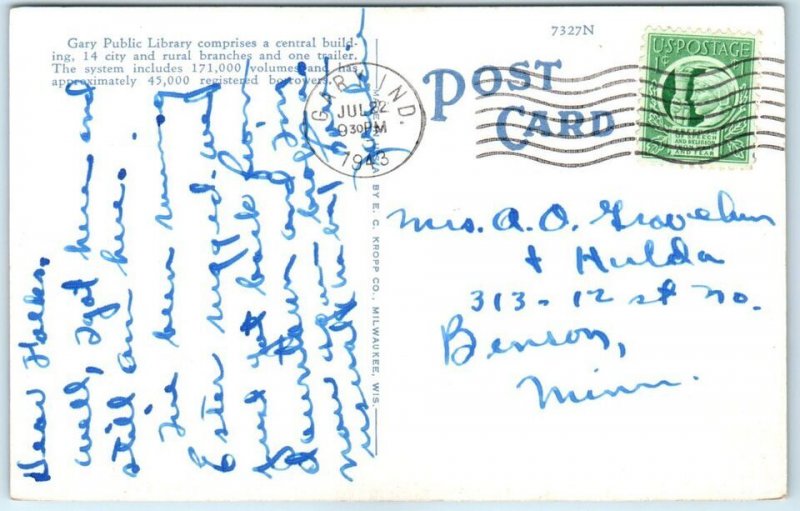 Gary Public Library comprises a central build-
ing, 14 city and rural branches and one trailer.
The system includes 171,000 volumes and has
approximately 45,000 registered borrowers.
7327N
POST
CARD
GARY, IND.
JUL 22
9 30 PM
1943
U.S. POSTAGE
1¢
FREEDOM OF
SPEECH
AND RELIGION
FROM WANT
AND FEAR
BY E. C. KROPP CO., MILWAUKEE, WIS.
Mrs. A. O.
+ Hulda
313 - 12 st No.
Benson,
Minn.
Dear Folks,
Well, I got here and
still am here.
I've been running
Ester ragged. We
just got back from
down town and I'm
now